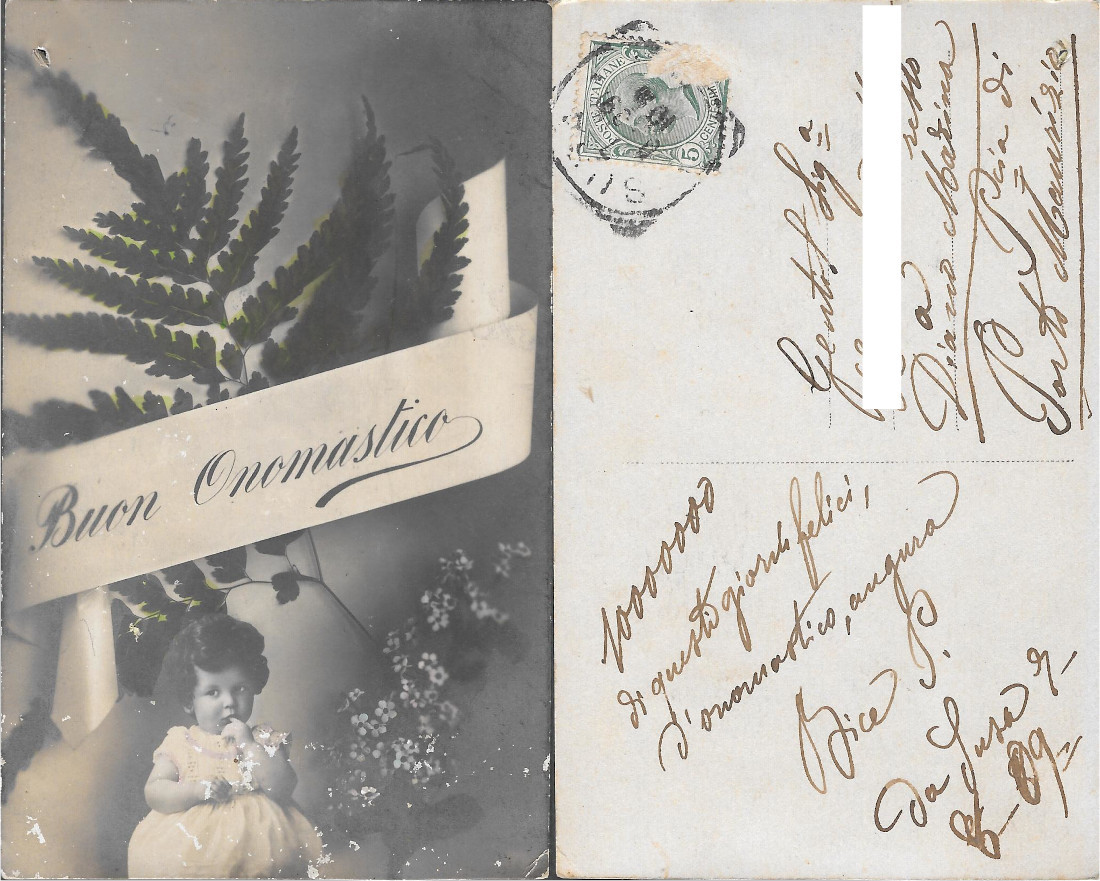 Buon Onomastico
POSTE ITALIANE
CENTESIMI
5
SUS
Gentil Sig.a
a
Diano Marina
P. Pia di
Porto Maurizio
10000000
di questi giorni felici,
d'onomastico, augura
Bice P.
Da Susa
09